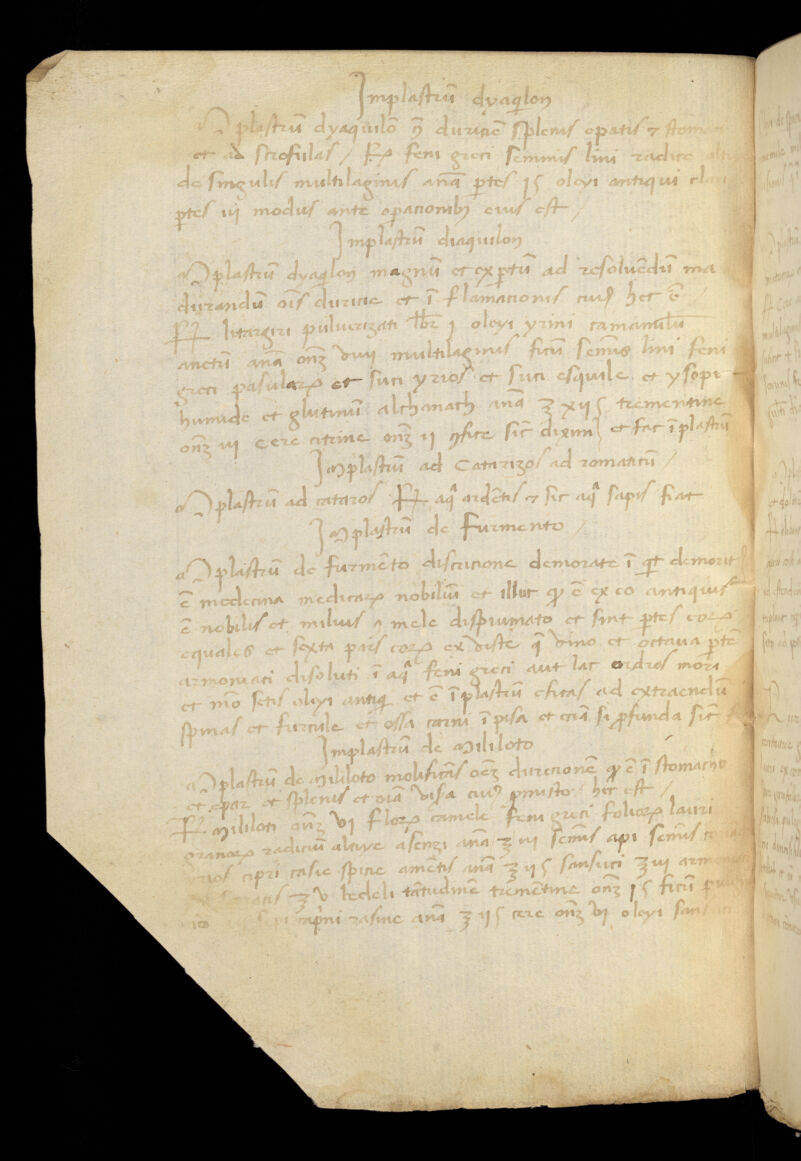 Implastrū dyaq̄lon
Mplastrū dyaquilō ɔ̄ duriciē splenis epatis ⁊ stom
et ad scrofulas / R̷ feni greci seminis lini radice altee
de singulis multilaginis anā ptes i ς oleyi antiqui clari
ptes iij modus ante opacionibꝫ eius est /
Implastrū diaquilon
Mplastrū dyaq̄lon magnū et expertū ad resoluēdū ma
durandū oīs duricie et ī flamacionis cuiꝰ hec ē
R̷ litargiri puluerizati lbr̄ i oleyi yrini camamilū
anetū anā onꝫ viij multilaginis ficū semīs lini feni
greci pasularꝝ et suci yrios et suci esquile et ysopi
humide et glutinū alchanach anā ʒ xii ς trementine
onꝫ iii cere citrine onꝫ ii ꝯfice sic̄ diximꝰ et fac īplastrū
Implastrū ad Catarizos ad romaticū /
Mplastrū ad cataros R̷ aq̄ ardētis ⁊ sic aq̄ sapis fiat
Implastrū de Furmento /
Mplāstrū de furmēto discricione demorate ī q̄ demorit
ē medecina medicarꝝ nobiliū et illut qđ ē ex eo antiquis
ē nobilis et milius ꝯ mele dispiumato et sint ptes eorꝝ
equales et sexta pars eorꝝ ex viste q̄ vino et octaua ptē
armoniaci disoluti ī aq̄ feni greci aut lac ordros mori
et nīo setis oleyi antiq̄ et ē īplastrū eficās ad extraendū
spinas et furcule et ossa carnī īpisa et eciā si pfunda sit̄
Implastrū de Mililoto
Mplastrū de Mililoto molificās oēꝫ durecionē qđ ē ī stomacho
et epar et splenis et oīa visa cuiꝰ pmisto hec est /
R̷ Mililoti onꝫ vi florꝝ camele feni greci foliorꝝ lauri
granorꝝ radiciū altiye asenzi anā ʒ iii semīs api semīs
yrios cipri casie spicie amētis anā ʒ ii ς sansuci ʒ vi armo
ʒ v bedeli tātudinē tremētine onꝫ i ς ficiū
rasine anā ʒ ii ς cere onꝫ vi oleyi san